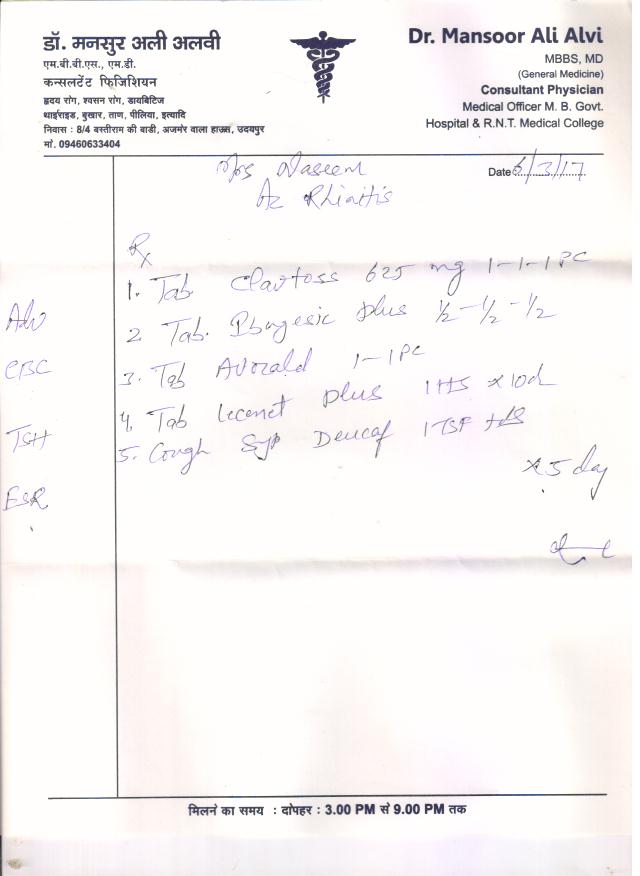 डॉ. मनसुर अली अलवी
एम.बी.बी.एस., एम.डी.
कन्सलटेंट फिजिशियन
हृदय रोग, श्वसन रोग, डायबिटिज
थाईराइड, बुखार, ताण, पीलिया, इत्यादि
निवास : 8/4 बस्तीराम की बाडी, अजमेर वाला हाऊस, उदयपुर
मो. 09460633404
Dr. Mansoor Ali Alvi
MBBS, MD
(General Medicine)
Consultant Physician
Medical Officer M. B. Govt.
Hospital & R.N.T. Medical College
Mrs Naseem
Date 6/3/17
Ac Rhinitis
Rx
1. Tab. Clavtoss 625 mg 1-1-1 PC
2. Tab. plus ½-½-½
3. Tab 1-1 PC
4. Tab plus 1 HS x 10d
5. Cough Syp 1 TSF HS
x 5 day
Adv
CBC
TSH
ESR
मिलने का समय : दोपहर : 3.00 PM से 9.00 PM तक